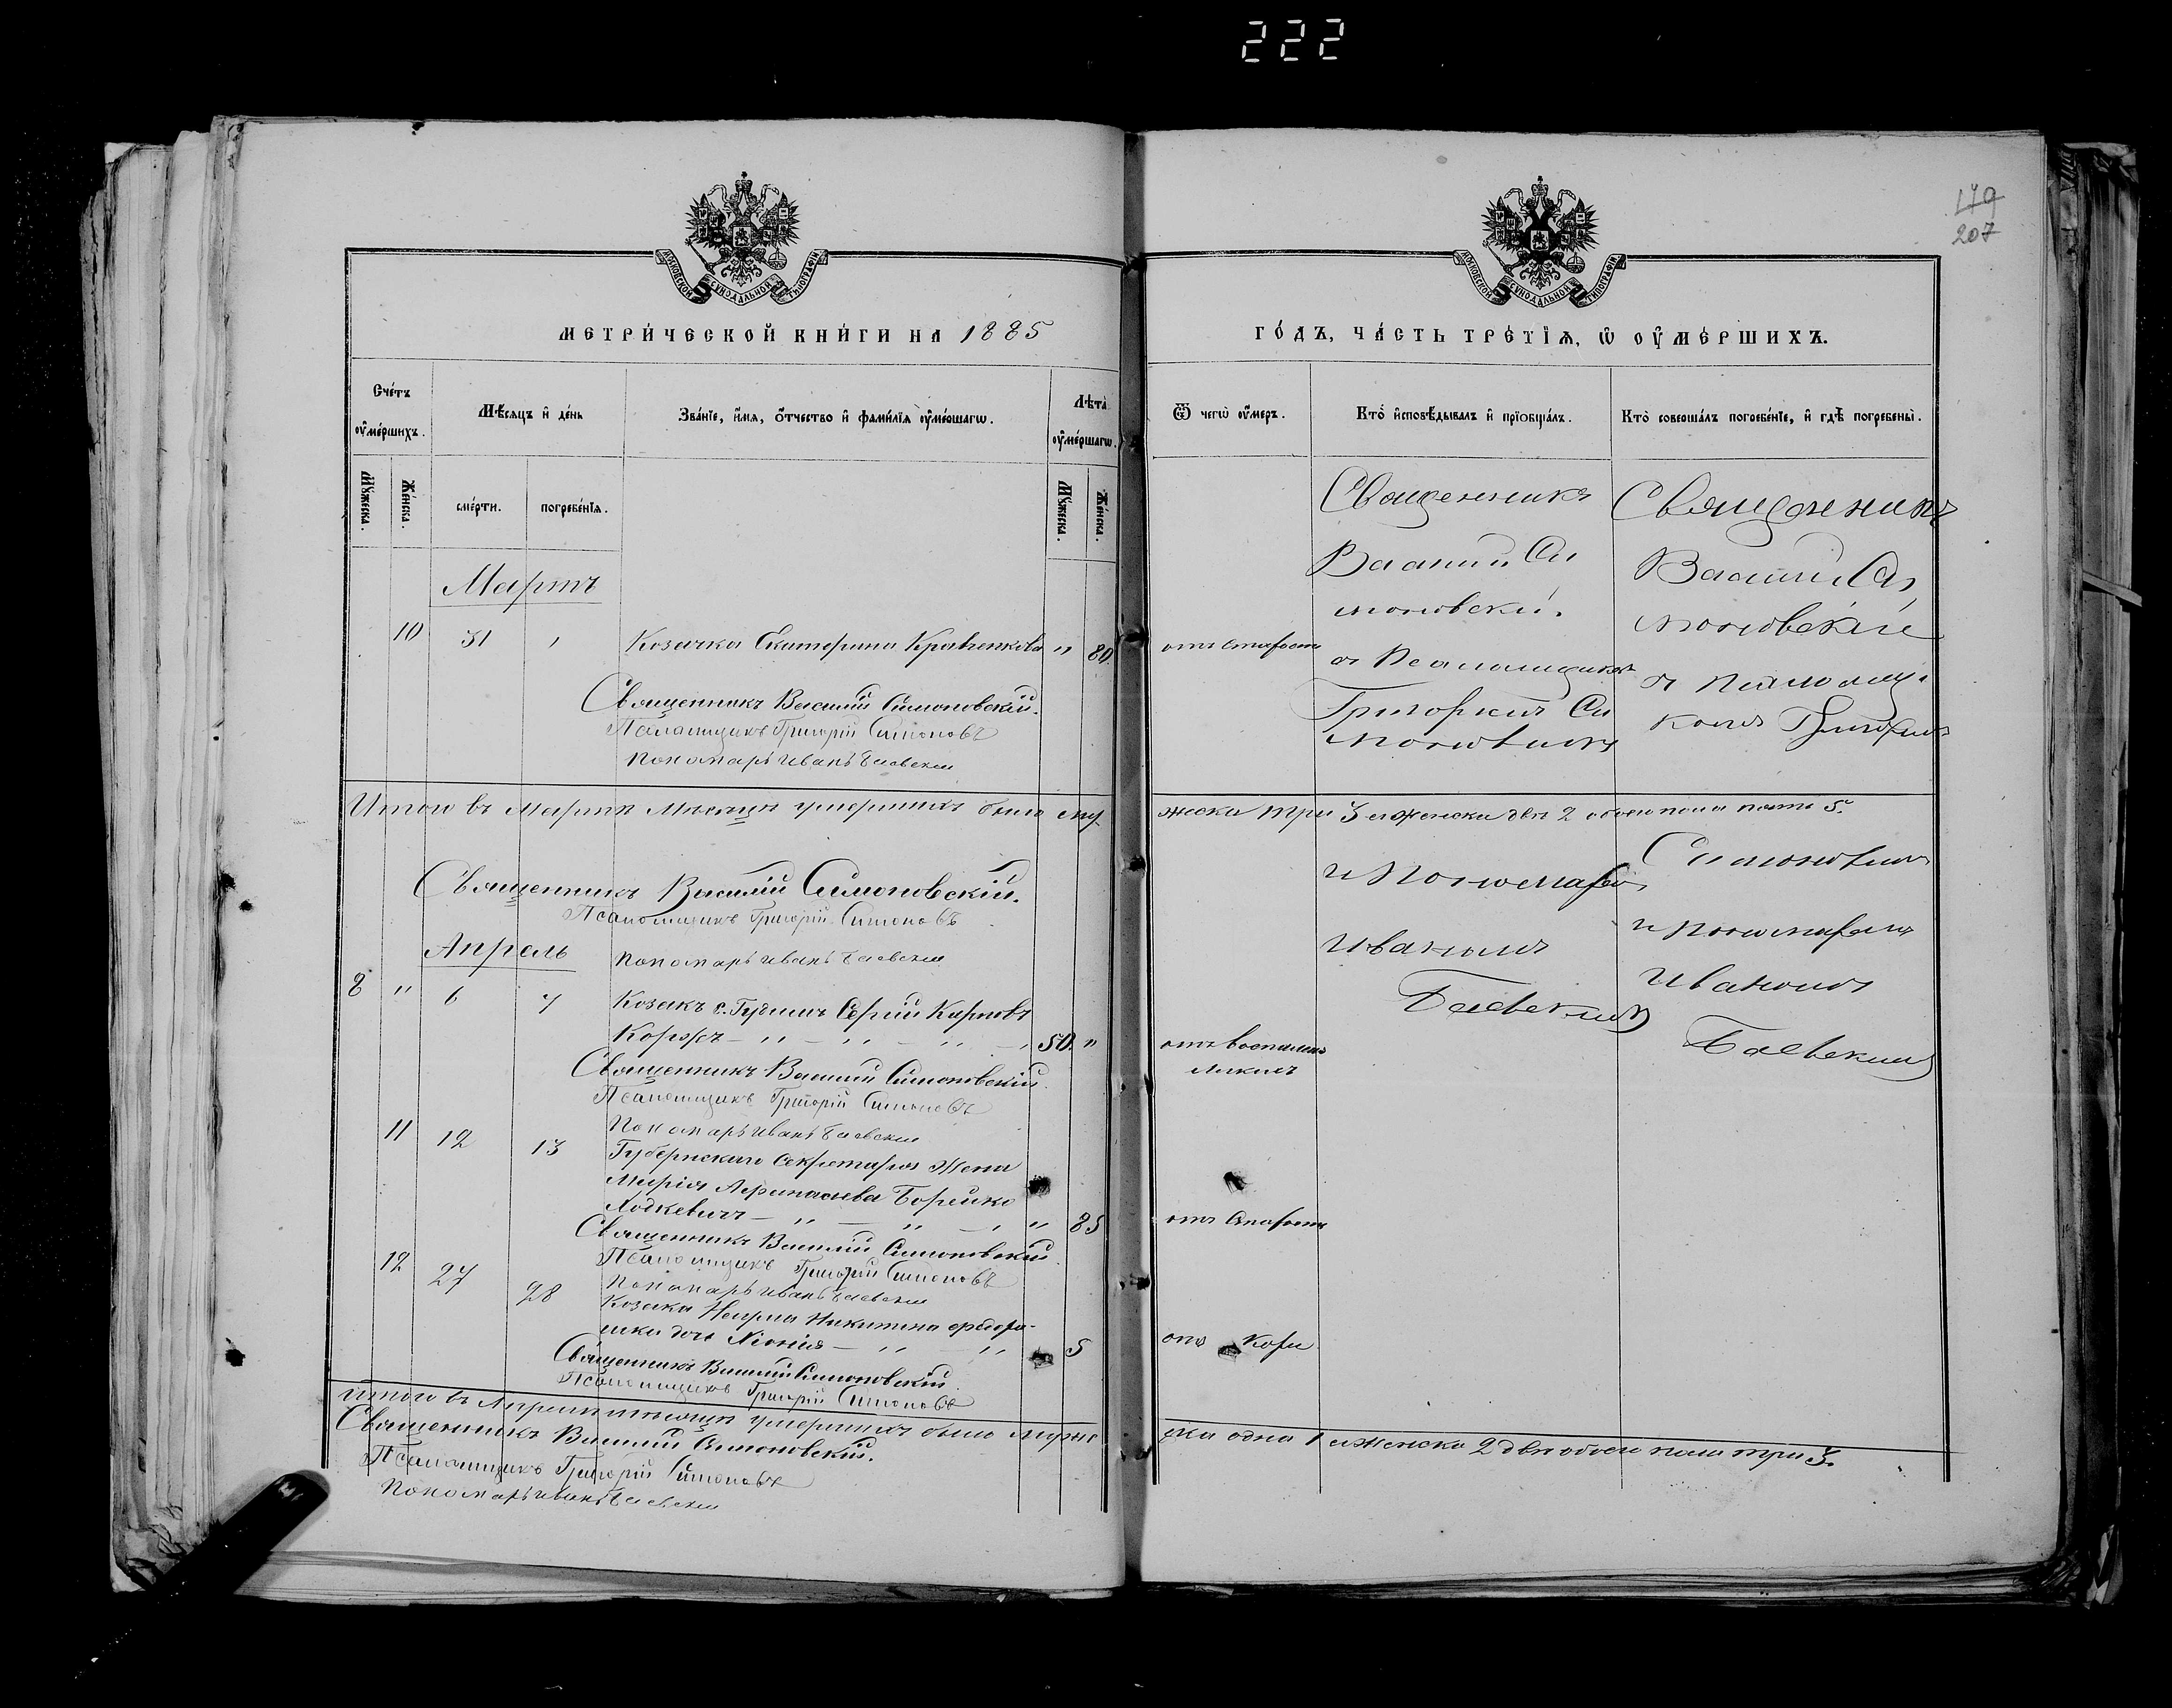 222
179
207
МОСКОВСКОЙ СУНОДАЛЬНОЙ ТИПОГРАФІИ
МОСКОВСКОЙ СУНОДАЛЬНОЙ ТИПОГРАФІИ
МЕТРИ́ЧЕСКОЙ КНИ́ГИ НА 1885
ГО́ДЪ, ЧА́СТЬ ТРЕ́ТІѦ, Ѡ ОУ҆МЕ́РШИХЪ.
Сче́тъ оу҆ме́ршихъ.
Мѣ́сяцъ и҆ де́нь
Зва́нїе, и҆́мя, ѻ҆́тчество и҆ фами́лїя оу҆ме́ршагѡ.
Лѣта̀ оу҆ме́ршагѡ.
Ѿ чегѡ̀ оу҆́меръ.
Кто̀ и҆сповѣ́дывалъ и҆ прїѡбща́лъ.
Кто̀ соверша́лъ погребе́нїе, и҆ гдѣ̀ погребены̀.
Мꙋ́жеска.
Же́нска.
сме́рти.
погребе́нїя.
Мꙋ́жеска.
Же́нска.
Мартъ
10 31 Козачка Екатерина Кравченкова " 80. отъ старости
Священникъ Василій Симоновскій.
Псаломщикъ Григорій Симоновъ
Пономарь Иванъ Баевскій
Священникъ
Василій Си
моновскій.
съ Псаломщикомъ
Григоріемъ Си
моновымъ
Священникъ
Василій Си
моновскій
съ Псаломщи
комъ Григоріемъ
Итого въ Мартѣ Мѣсяцѣ умершихъ было му
жеска три 3 и женска двѣ 2 обоего пола пять 5.
Священникъ Василій Симоновскій.
Псаломщикъ Григорій Симоновъ
Пономарь Иванъ Баевскій
и Пономаремъ
Иваномъ
Баевскимъ
Симоновымъ
и Пономаремъ
Иваномъ
Баевскимъ
Апрель
8 " 6 7 Козакъ с. Гудимъ Сергій Карповъ
Коржъ — " — " — " — 50. " отъ воспаленія
легкихъ
Священникъ Василій Симоновскій.
Псаломщикъ Григорій Симоновъ
Пономарь Иванъ Баевскій
11 12 13 Губернскаго Секретаря Жена
Марія Афанасьева Борейко
Ходкевичъ — " — " — " 85 отъ старости
Священникъ Василій Симоновскій.
Псаломщикъ Григорій Симоновъ
Пономарь Иванъ Баевскій
12 27 28 Козака Наума Никитина
дочь Хіонія — " " 5 отъ Кори
Священникъ Василій Симоновскій.
Псаломщикъ Григорій Симоновъ
Итого въ Апрелѣ мѣсяцѣ умершихъ было муже
ска одна 1 и женска 2 двѣ обоего пола три 3.
Священникъ Василій Симоновскій.
Псаломщикъ Григорій Симоновъ
Пономарь Иванъ Баевскій